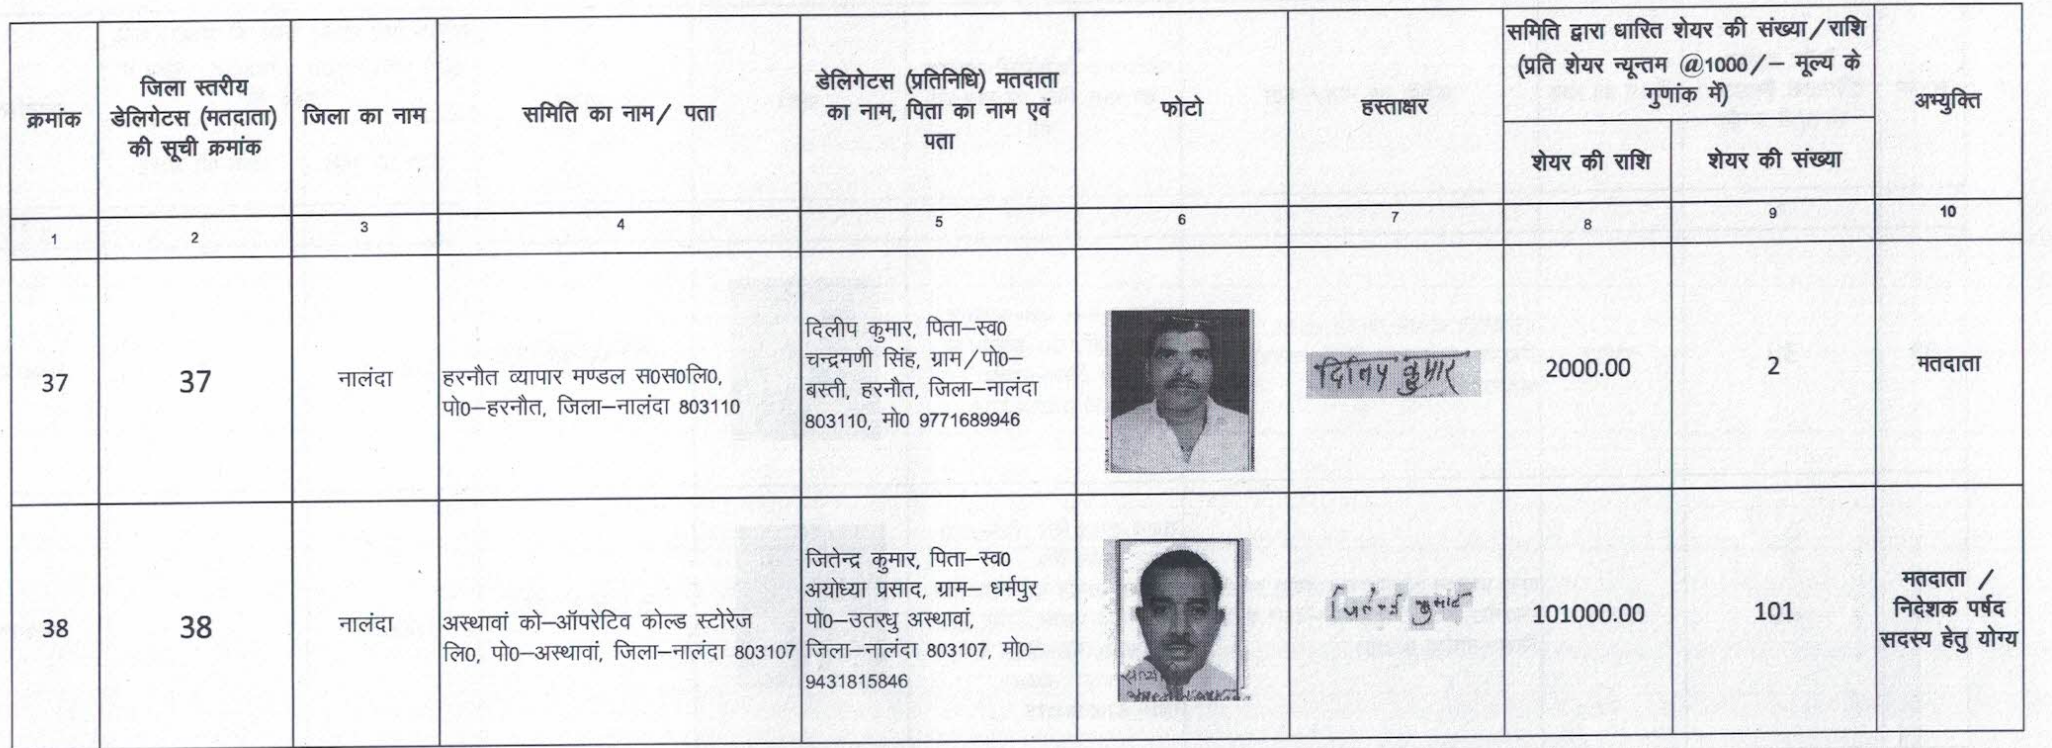 क्रमांक
जिला स्तरीय
डेलिगेटस (मतदाता)
की सूची क्रमांक
जिला का नाम
समिति का नाम/ पता
डेलिगेटस (प्रतिनिधि) मतदाता
का नाम, पिता का नाम एवं
पता
फोटो
हस्ताक्षर
समिति द्वारा धारित शेयर की संख्या/राशि
(प्रति शेयर न्यूनतम @1000/– मूल्य के
गुणांक में)
शेयर की राशि
शेयर की संख्या
अभ्युक्ति
1
2
3
4
5
6
7
8
9
10
37
37
नालंदा
हरनौत व्यापार मण्डल स0स0लि0,
पो0–हरनौत, जिला–नालंदा 803110
दिलीप कुमार, पिता–स्व0
चन्द्रमणी सिंह, ग्राम/पो0–
बस्ती, हरनौत, जिला–नालंदा
803110, मो0 9771689946
दिलिप कुमार
2000.00
2
मतदाता
38
38
नालंदा
अस्थावां को–ऑपरेटिव कोल्ड स्टोरेज
लि0, पो0–अस्थावां, जिला–नालंदा 803107
जितेन्द्र कुमार, पिता–स्व0
अयोध्या प्रसाद, ग्राम– धर्मपुर
पो0–उतरधु अस्थावां,
जिला–नालंदा 803107, मो0–
9431815846
जितेन्द्र कुमार
101000.00
101
मतदाता /
निदेशक पर्षद
सदस्य हेतु योग्य